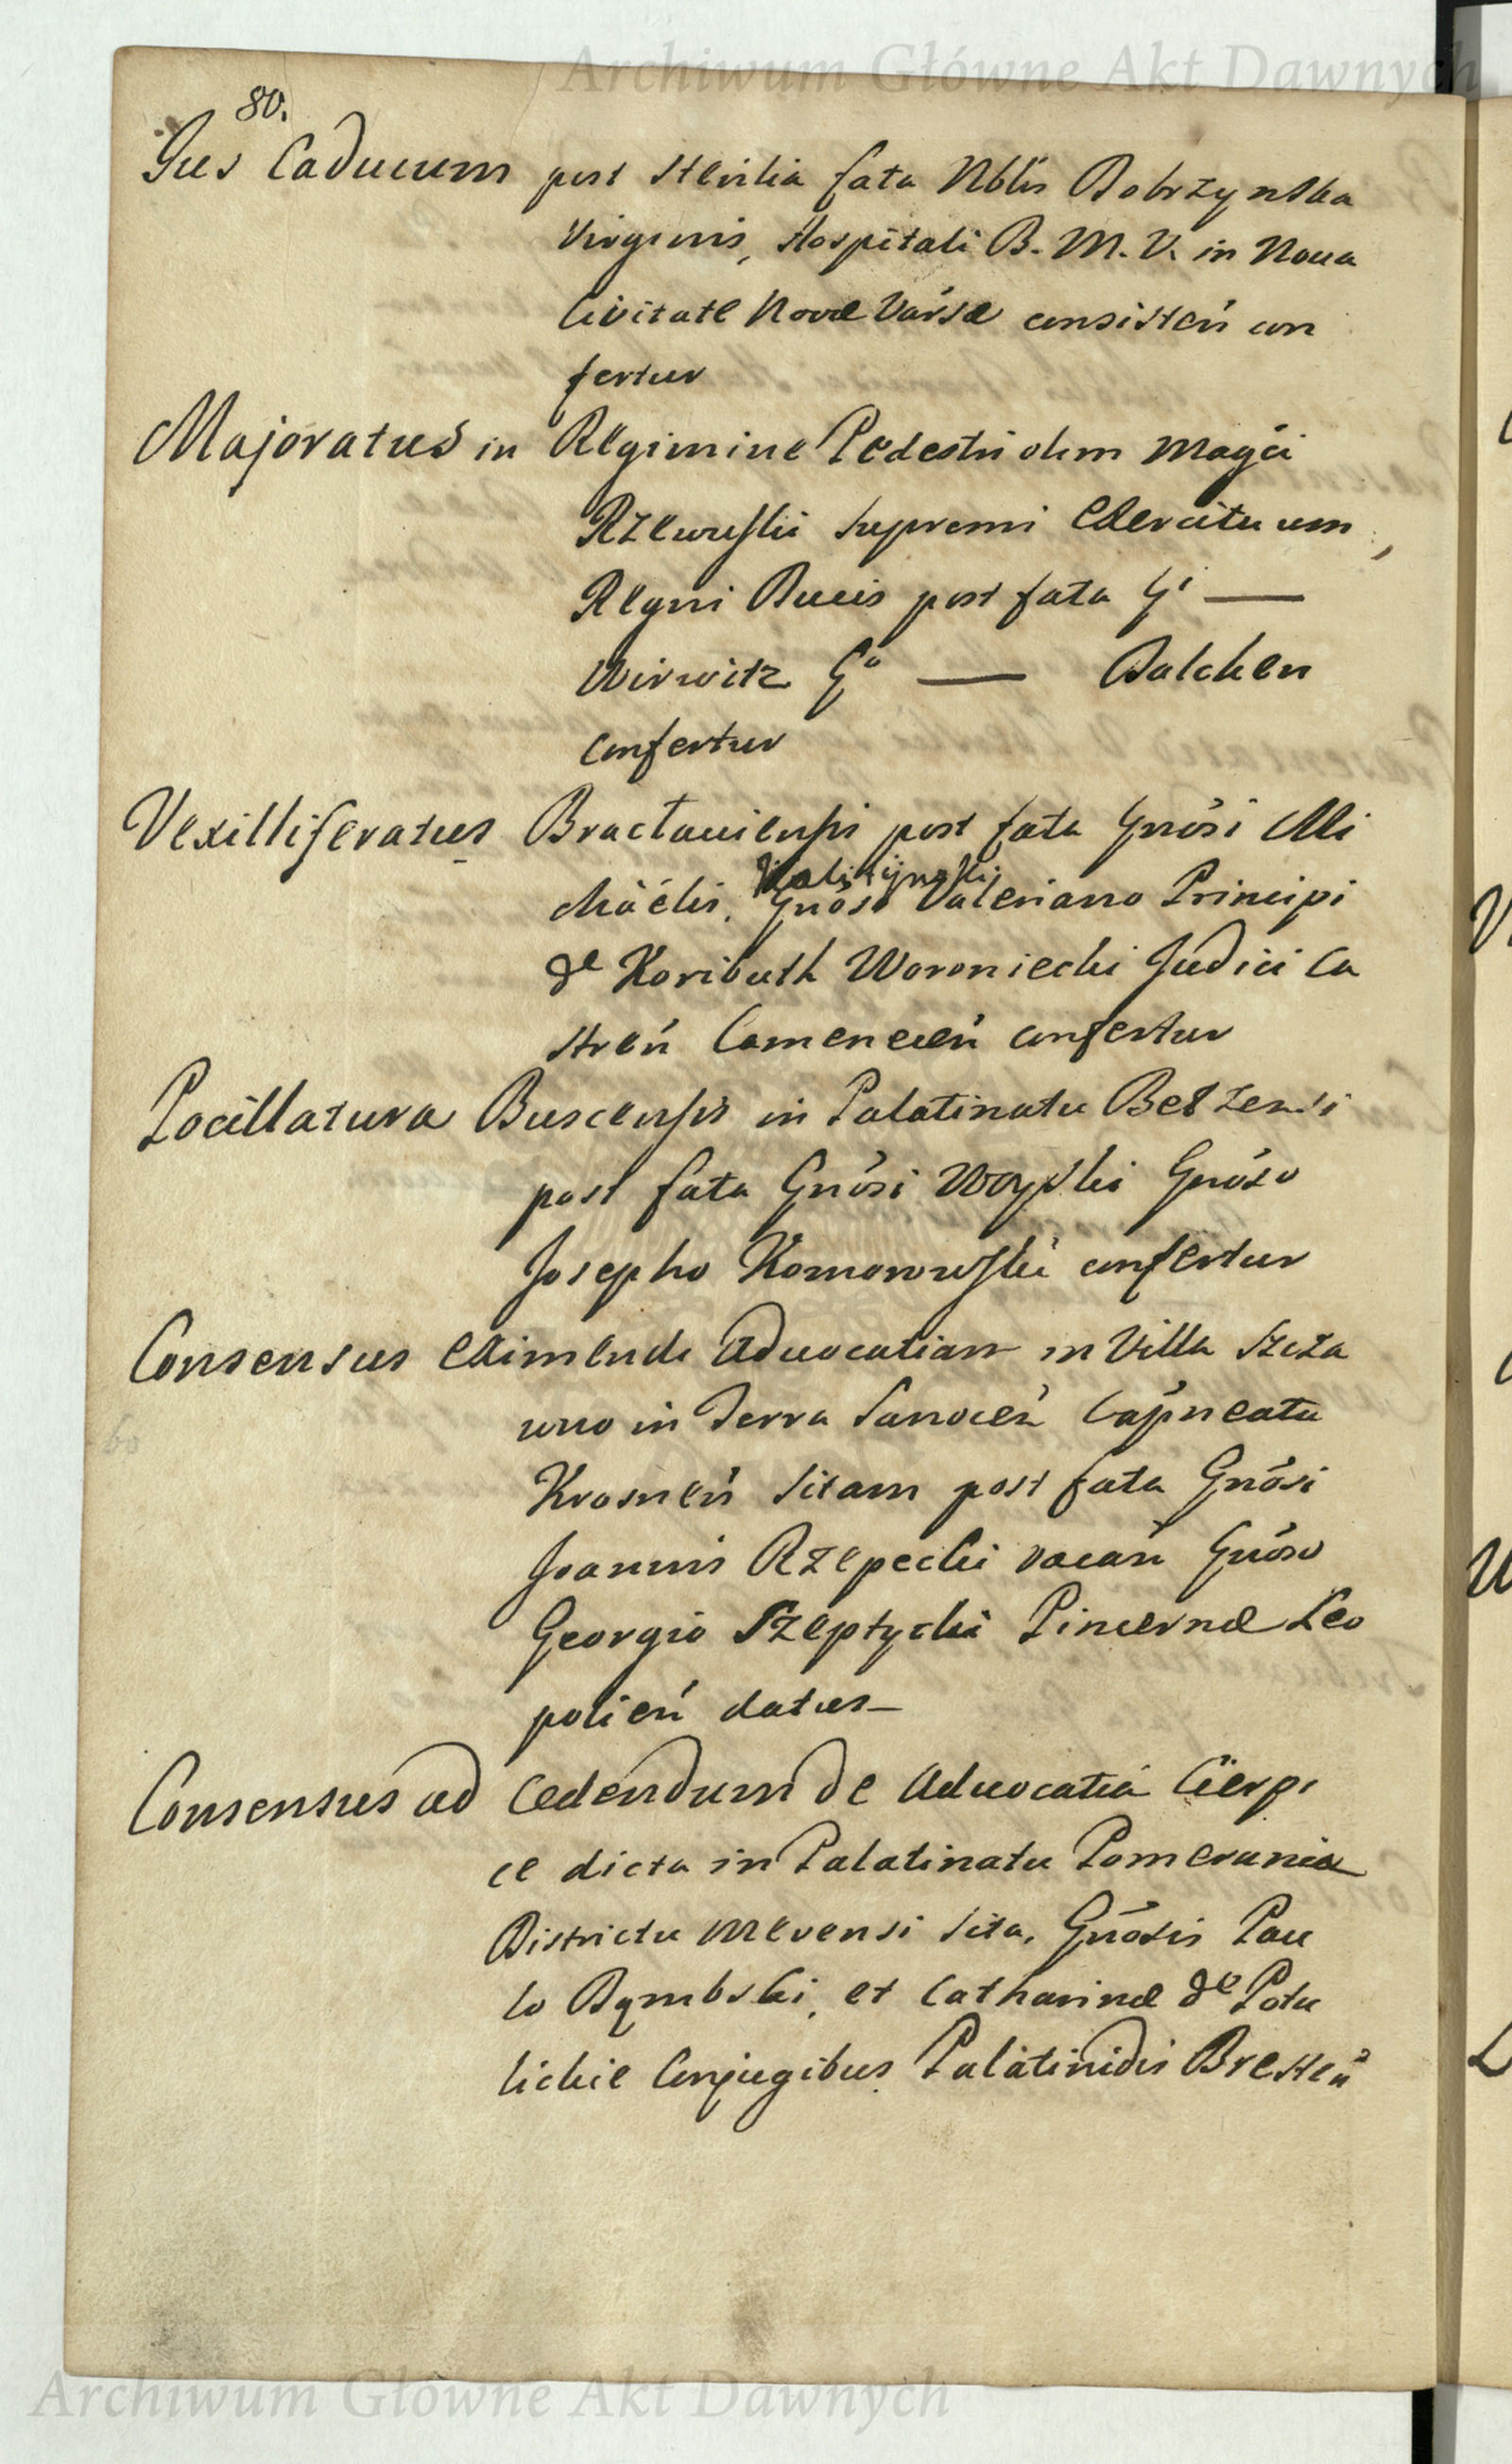 Archiwum Główne Akt Dawnych
80.
Jus Caducum post sterilia fata Nblis Dobrzynska
Virginis, Hospitali B. M. V. in Noua
Civitate Novæ Varsæ consisteń con
fertur
Majoratus in Regimine Pedestri olim Magći
Rzewuskii Supremi Exercituum,
Regni Ducis post fata Gi —
Wirwitz Go — Dalchen
Confertur
Vexilliferatus Braclauiensis post fata Gnōsi Mi
chäelis, Gnōso Valeriano Principi
de Koributh Woroniecki Judici Ca
streń Camenecen confertur
Pocillatura Buscensis in Palatinatu Belzensi
post fata Gnōsi Woyski Gnōso
Josepho Komorowski confertur
Consensus eximendi Aduocatiam in Villa Szcza
wno in Terra Sanoceń Capneatu
Krosneń Sitam post fata Gnōsi
Joannis Rzepecki vacań Gnōso
Georgio Szeptycki Pincernæ Leo
polień datus—
Consensus ad Cedendum de Aduocatia Cierpi
ce dicta in Palatinatu Pomeraniæ
Districtu Mevensi Sita, Gnōsis Pau
lo Dąmbski, et Catharinæ de Potu
lickie Conjugibus Palatinidis Bresteń
Archiwum Główne Akt Dawnych